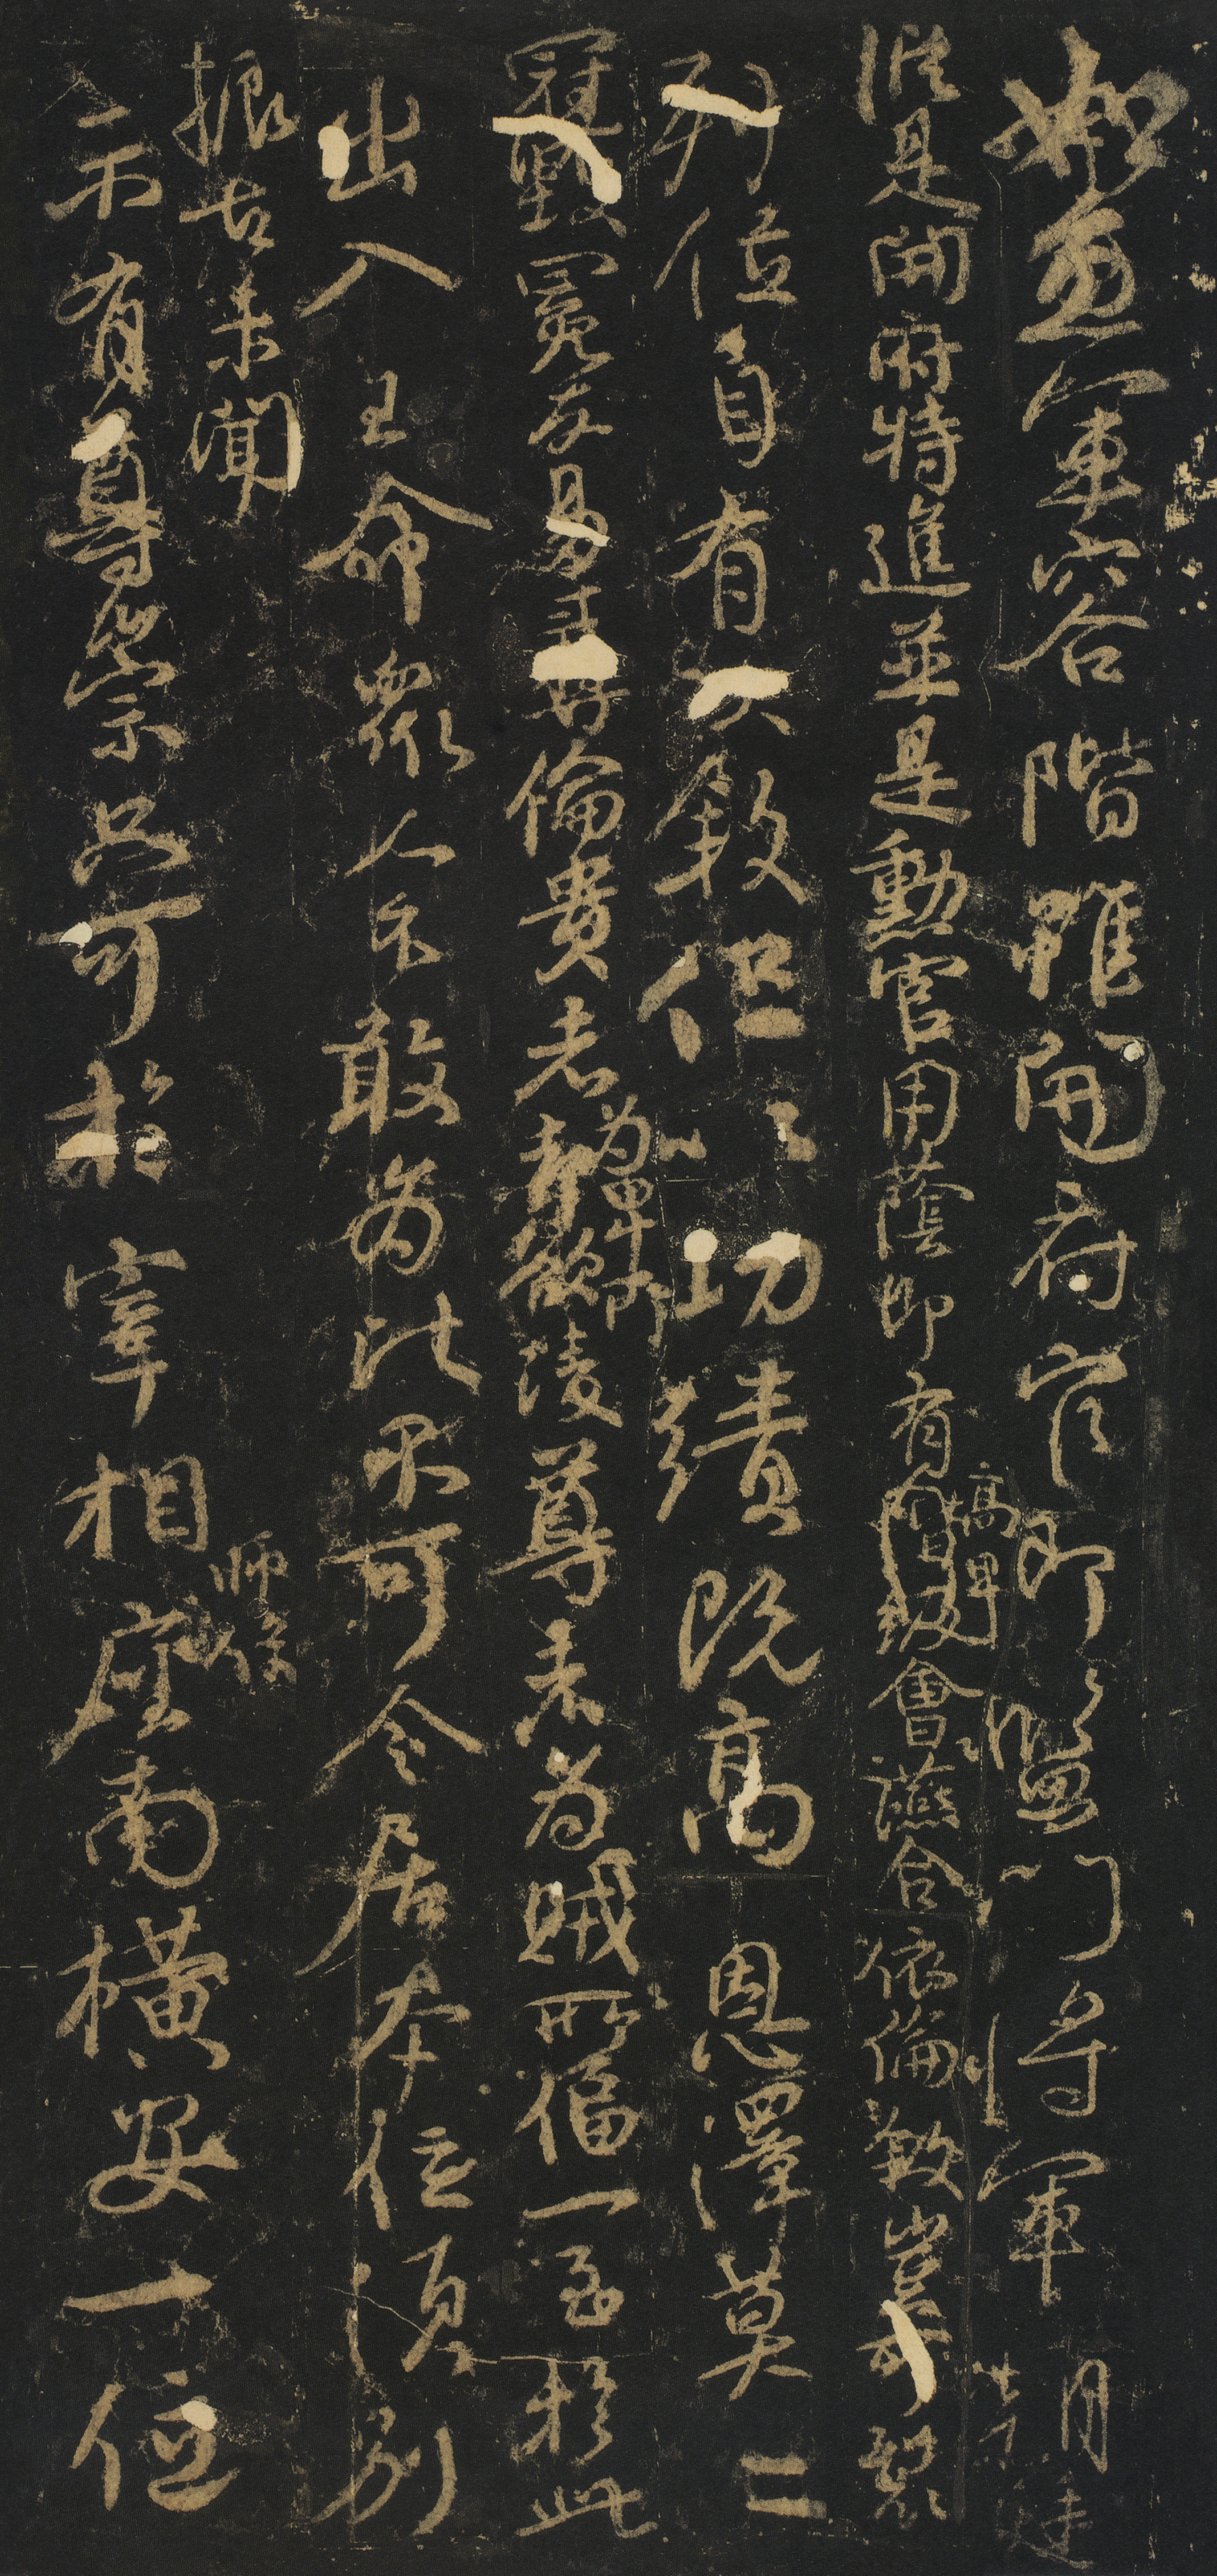 如魚軍容階雖開府官即監門將軍朝廷
縱是開府特進並是勳官用蔭即有高卑階級會讌合依倫敘豈可裂
列位自有次敘但以功績既高恩澤莫二
冠毀冕反易彝倫貴者為卑所陵尊者為賊所偪一至於此
出入王命眾人不敢為比不可令居本位須別
振古未聞
示有尊崇只可於宰相師保座南橫安一位